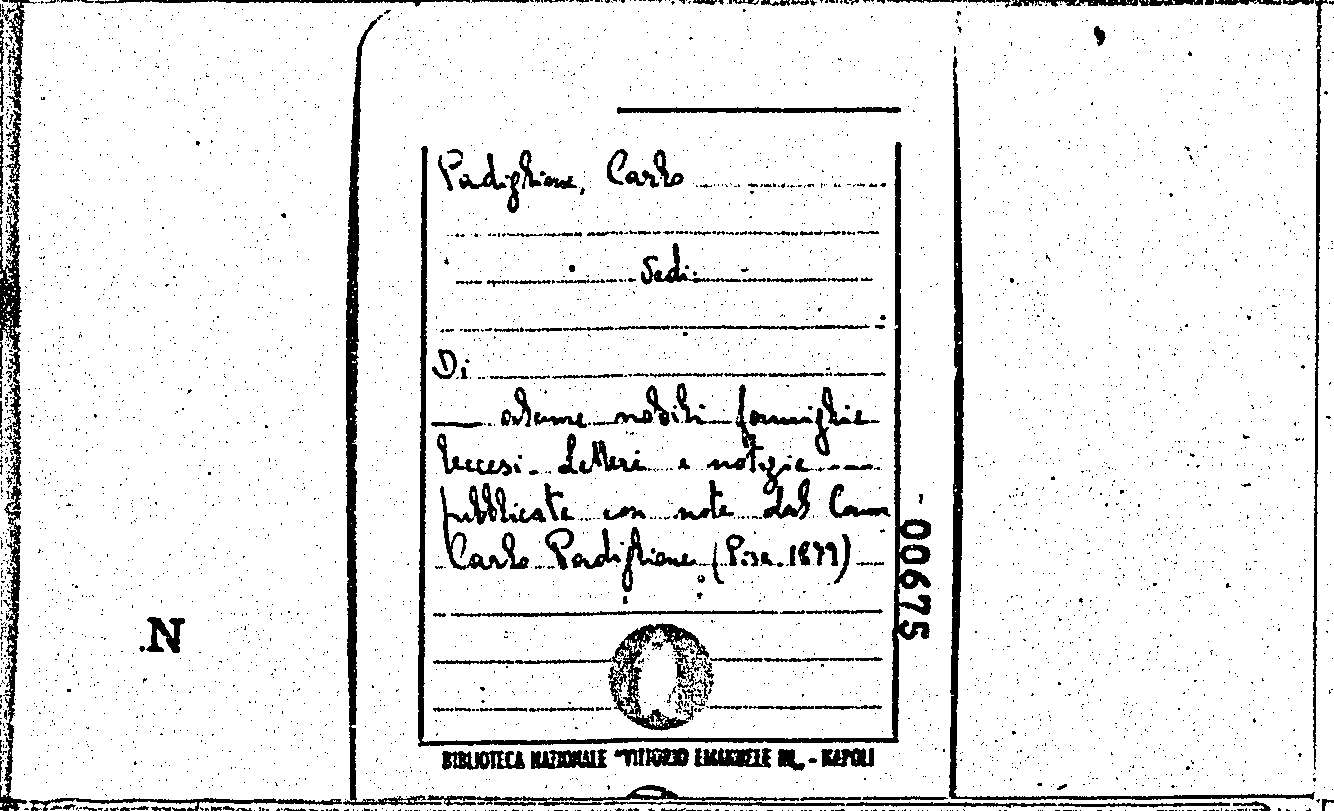 Padiglione, Carlo
Vedi:
Di
alcune nobili famiglie
leccesi. Lettere e notizie
pubblicate con note dal Comm
Carlo Padiglione (Pisa. 1879)
00675
.N
BIBLIOTECA NAZIONALE "VITTORIO EMANUELE III„ - NAPOLI